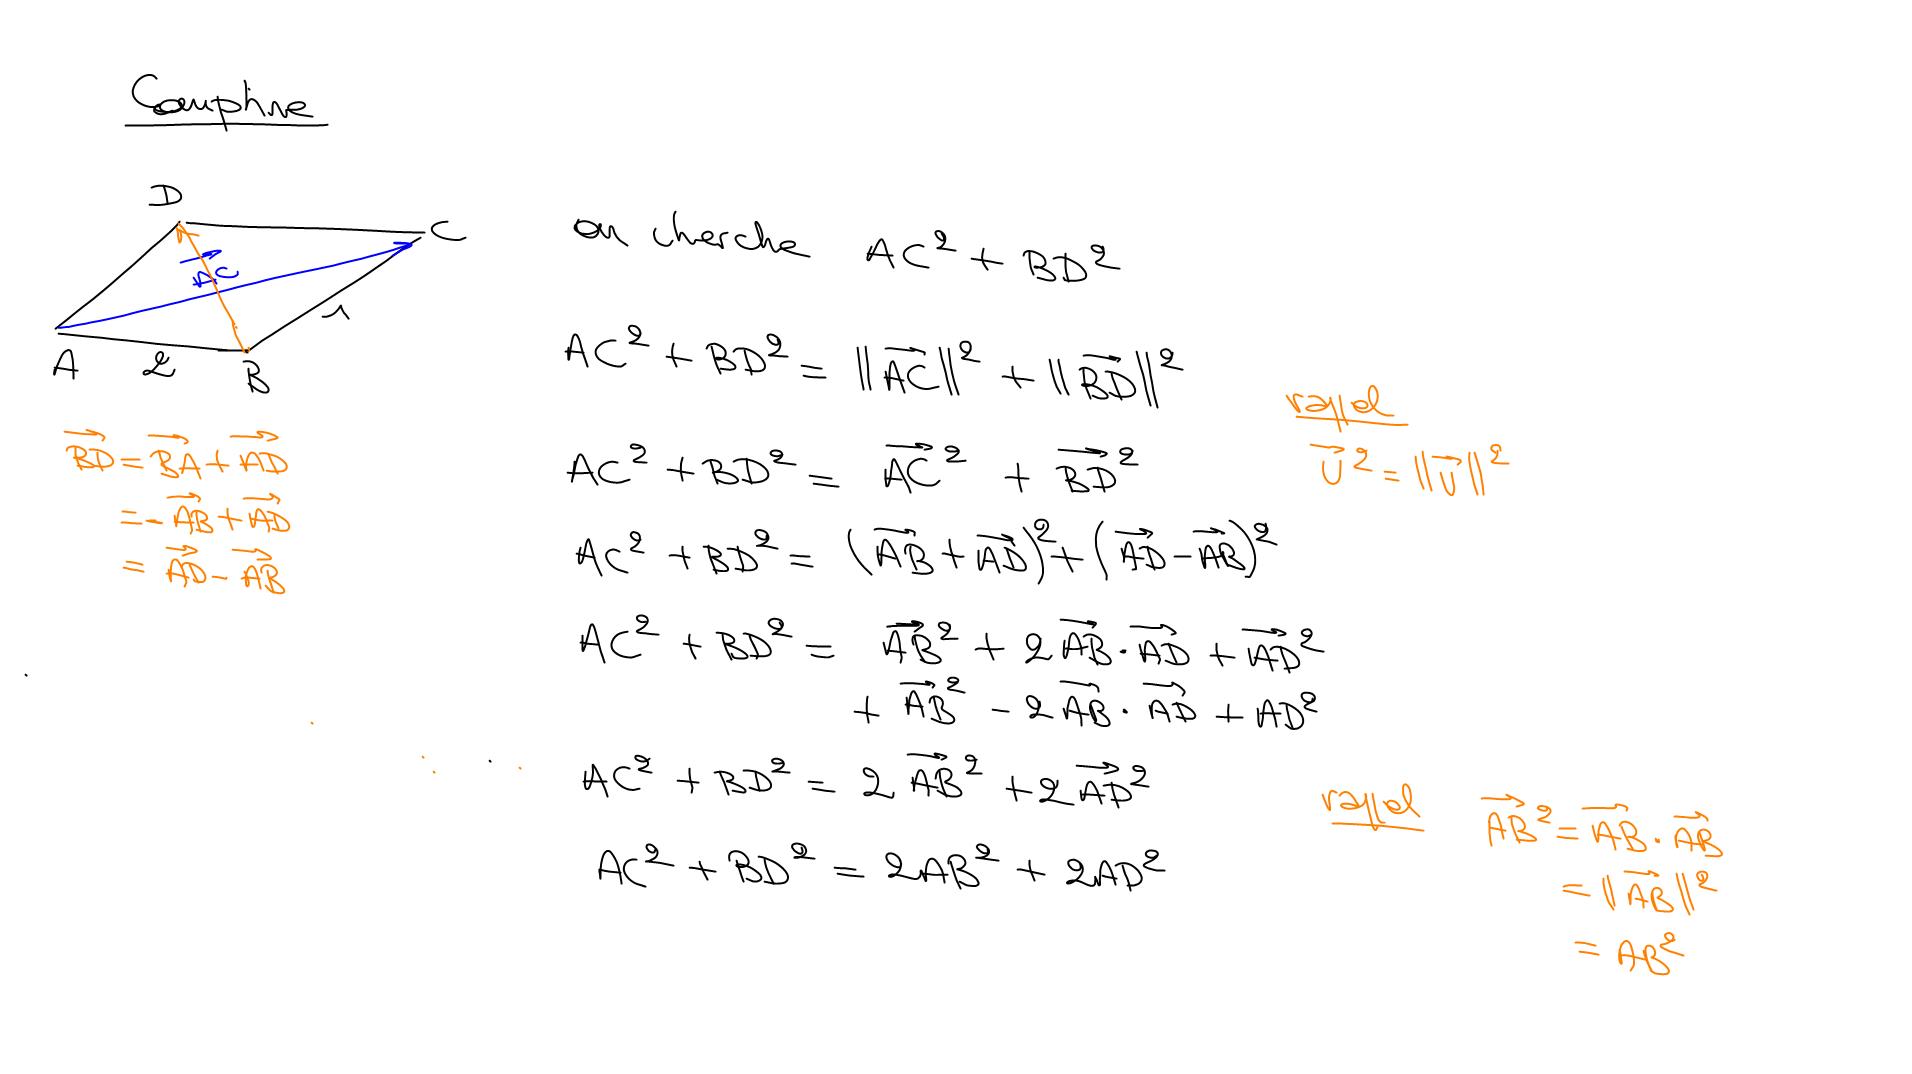 D
C
AC
A
2
B
1
BD = BA + AD
= - AB + AD
= AD - AB
on cherche AC² + BD²
AC² + BD² = ||AC||² + ||BD||²
rappel
U² = ||U||²
AC² + BD² = AC² + BD²
AC² + BD² = (AB + AD)² + (AD - AB)²
AC² + BD² = AB² + 2 AB · AD + AD²
+ AB² - 2 AB · AD + AD²
AC² + BD² = 2 AB² + 2 AD²
AC² + BD² = 2AB² + 2AD²
rappel AB² = AB · AB
= ||AB||²
= AB²